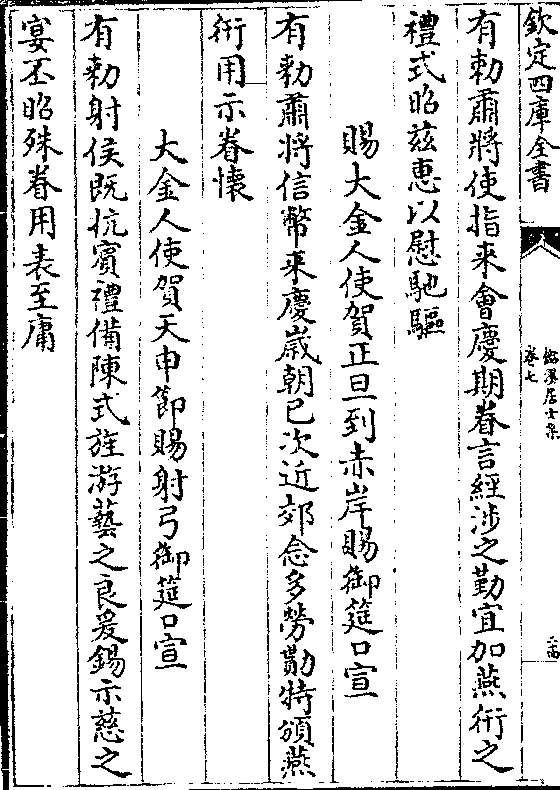 欽定四庫全書
海陵居士集
卷七
二十四
有勅肅將使指来會慶期眷言經涉之勤宜加燕衎之
禮式昭兹惠以慰馳驅
賜大金人使賀正旦到赤岸賜御筵口宣
有勅肅將信幣来慶嵗朝已次近郊念多勞勩特頒燕
衎用示眷懷
大金人使賀天申節賜射弓御筵口宣
有勅射侯既抗賓禮備陳式旌游藝之良爰錫示慈之
宴丕昭殊眷用表至庸